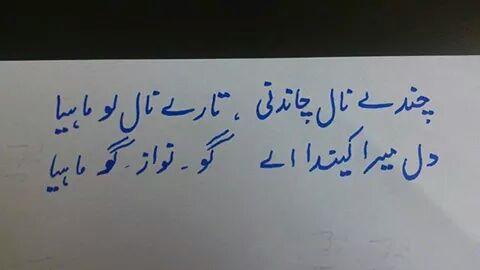 چندے نال چاندنی ، تارے نال لو ماہیا
دل میرا کیندا اے گو ۔ نواز ۔ گو ماہیا